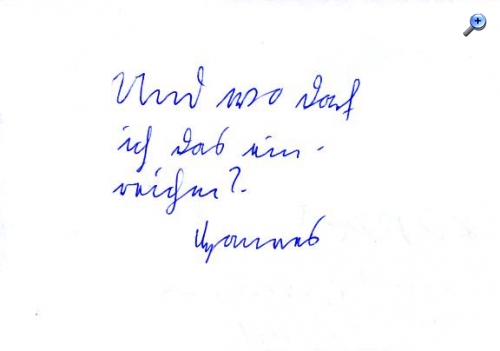 Und wo darf
ich das ein-
reichen?